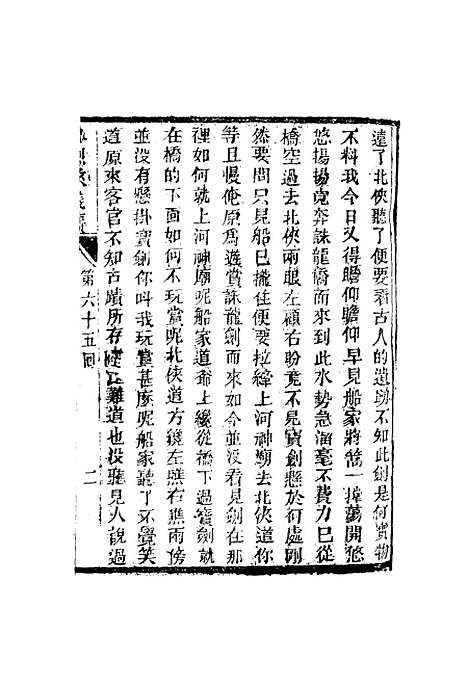 遠了北俠聽了便要看古人的遺跡不知此劍是何寶物
不料我今日又得瞻仰瞻仰早見船家將篙一撐蕩開悠
悠揚揚竟奔誅龍橋而來到此水勢急溜毫不費力已從
橋空過去北俠兩眼左顧右盼竟不見寶劍懸於何處剛
然要問只見船已攏住便要拉縴上河神廟去北俠道你
等且慢俺原爲遊賞誅龍劍而來如今並沒有看見劍在那
裡如何就上河神廟呢船家道爺上纔從橋下過寶劍就
在橋的下面如何不玩賞呢北俠道方纔左瞧右瞧兩傍
並沒有懸掛寶劍你叫我玩賞甚麽呢船家聽了不覺笑
道原來客官不知古蹟所存之處難道也沒聽見人說過
第六十五回
二